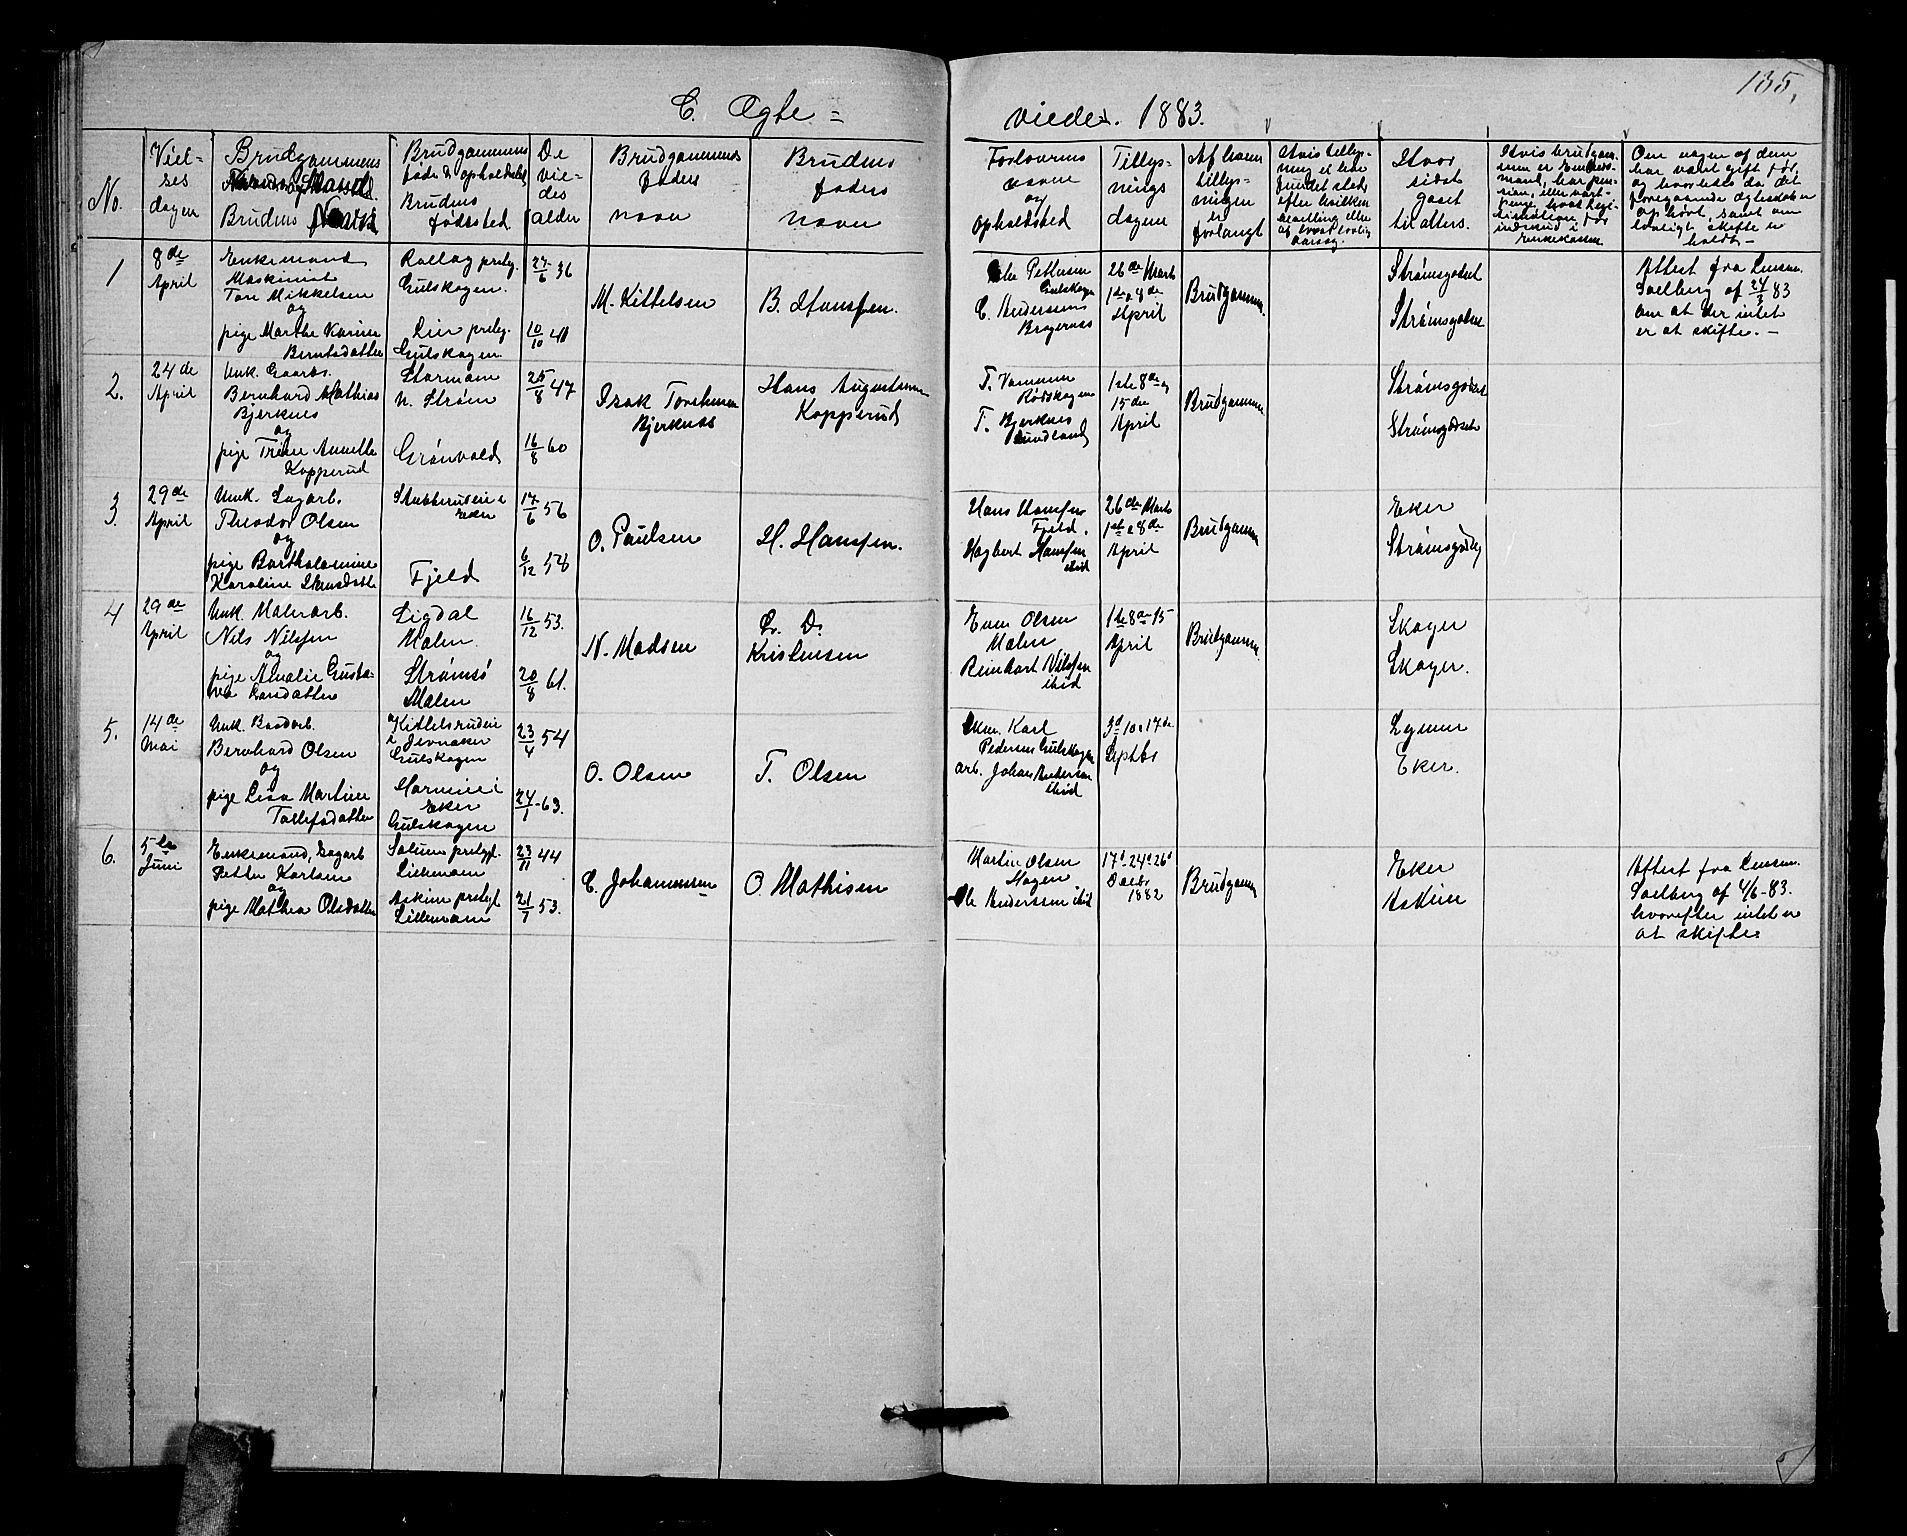 135.
C. Ægte =
viede. 1883.
No.
Viel-
ses
dagen
Brudgommens
og
Brudens Navn
Brudgommens
føde & opholdsted
Brudens
fødested
De
vie-
des
alder
Brudgommens
faders
navn
Brudens
faders
navn
Forlovernes
navne
og
opholdsted
Tillys-
nings
dagene
Af hvem
tillys-
ningen
er
forlangt
Hvis tillys-
ning ei har
fundet sted,
efter hvilken
bevilling eller
af hvad lovlig
aarsag.
Hvor
sidst
gaaet
til alters.
Hvis brudgom-
men er
mand, har pen-
sion, eller vart-
penge, hvad legi-
timation for
indskud i
Enkekassen
Om nogen af dem
har været gift før,
og hvorledes da det
foregaaende ægteskab er
ophørt, samt om
lovligt skifte er
holdt –
1
8de
April
Enkemand
Maskinist
Tore Mikkelsen
og
pige Marthe Karine
Berntsdatter
Rollag prstg.
Gulskogen.
Lier prstg.
Gulskogen
27/6 36
10/10 41
M. Kittelsen
B. Hanssen.
Ole Pettersen
Gulskogen
C. Anderssen
Bragernæs
26de Marts
1ste 8de
April
Brudgommen
Strømsgodset
Strømsgodset
Attest fra Lensm.
Solberg af 24/3 83
om at der intet
er at skifte. –
2.
24de
April
Unk. Gaardb.
Bernhard Mathias
Bjerknes
og
pige Trine Annette
Kopperud
Stormoen
N. Strøm
Grønvold
25/8 47
16/8 60
Isak Torstensen
Bjerknæs
Hans Augustinsen
Kopperud
T.
Rødskogen
T. Bjerknes
Sundland
1ste 8de og
15de
April
Brudgommen
Strømsgodset
Strømsgodset
3.
29de
April
Unk. Sagarb.
Theodor Olsen
og
pige Bartholomine
Karoline Hansdatter
Stubberudeie i
Eker
Fjeld
17/6 56
6/12 58
O. Paulsen
H. Hanssen.
Hans Hanssen
Fjeld.
Hagbert Hanssen
ibid
26de Marts
1ste 8de
April
Brudgommen
Eker
Strømsgodset
4
29de
April
Unk. Malerarb.
Nils Nilssen
og
pige Amalie Gusta-
va
Sigdal
Malen.
Strømsø
Malen
16/12 53.
20/8 61.
N. Madsen
L. D.
Kristensen
Even Olsen
Malen
Reinhart Nilssen
ibid
1ste 8de 15
April
Brudgommen
Skoger
Skoger.
5.
14de
Mai
Unk. Bordarb.
Bernhard Olsen
og
pige Lisa Martine
Tollefsdatter
Kittelsrudeie
i Jevnaker
Gulskogen
Horneneie i
Eker
Gulskogen
23/4 54
24/1 63.
O. Olsen
T. Olsen
Karl
Pedersen Gulskogen
arb. Johan Andersen
ibid
3d 10 17de
Septbr
Eker.
6.
5te
Juni
Enkemand, Sagarb
Petter Karlsen
og
pige Mathea Olsdatter
Solum prstgj.
Liermoen
Askim prstgj.
Liermoen
23/11 44
21/1 53.
C. Johannessen
O. Mathisen
Martin Olsen
Hagen
Ole Anderssen ibid
17d 24d 26d
Decbr
1882
Brudgommen
Eker
Askim
Attest fra Lensm.
Solberg af 4/6-83.
hvorefter intet er
at skifte